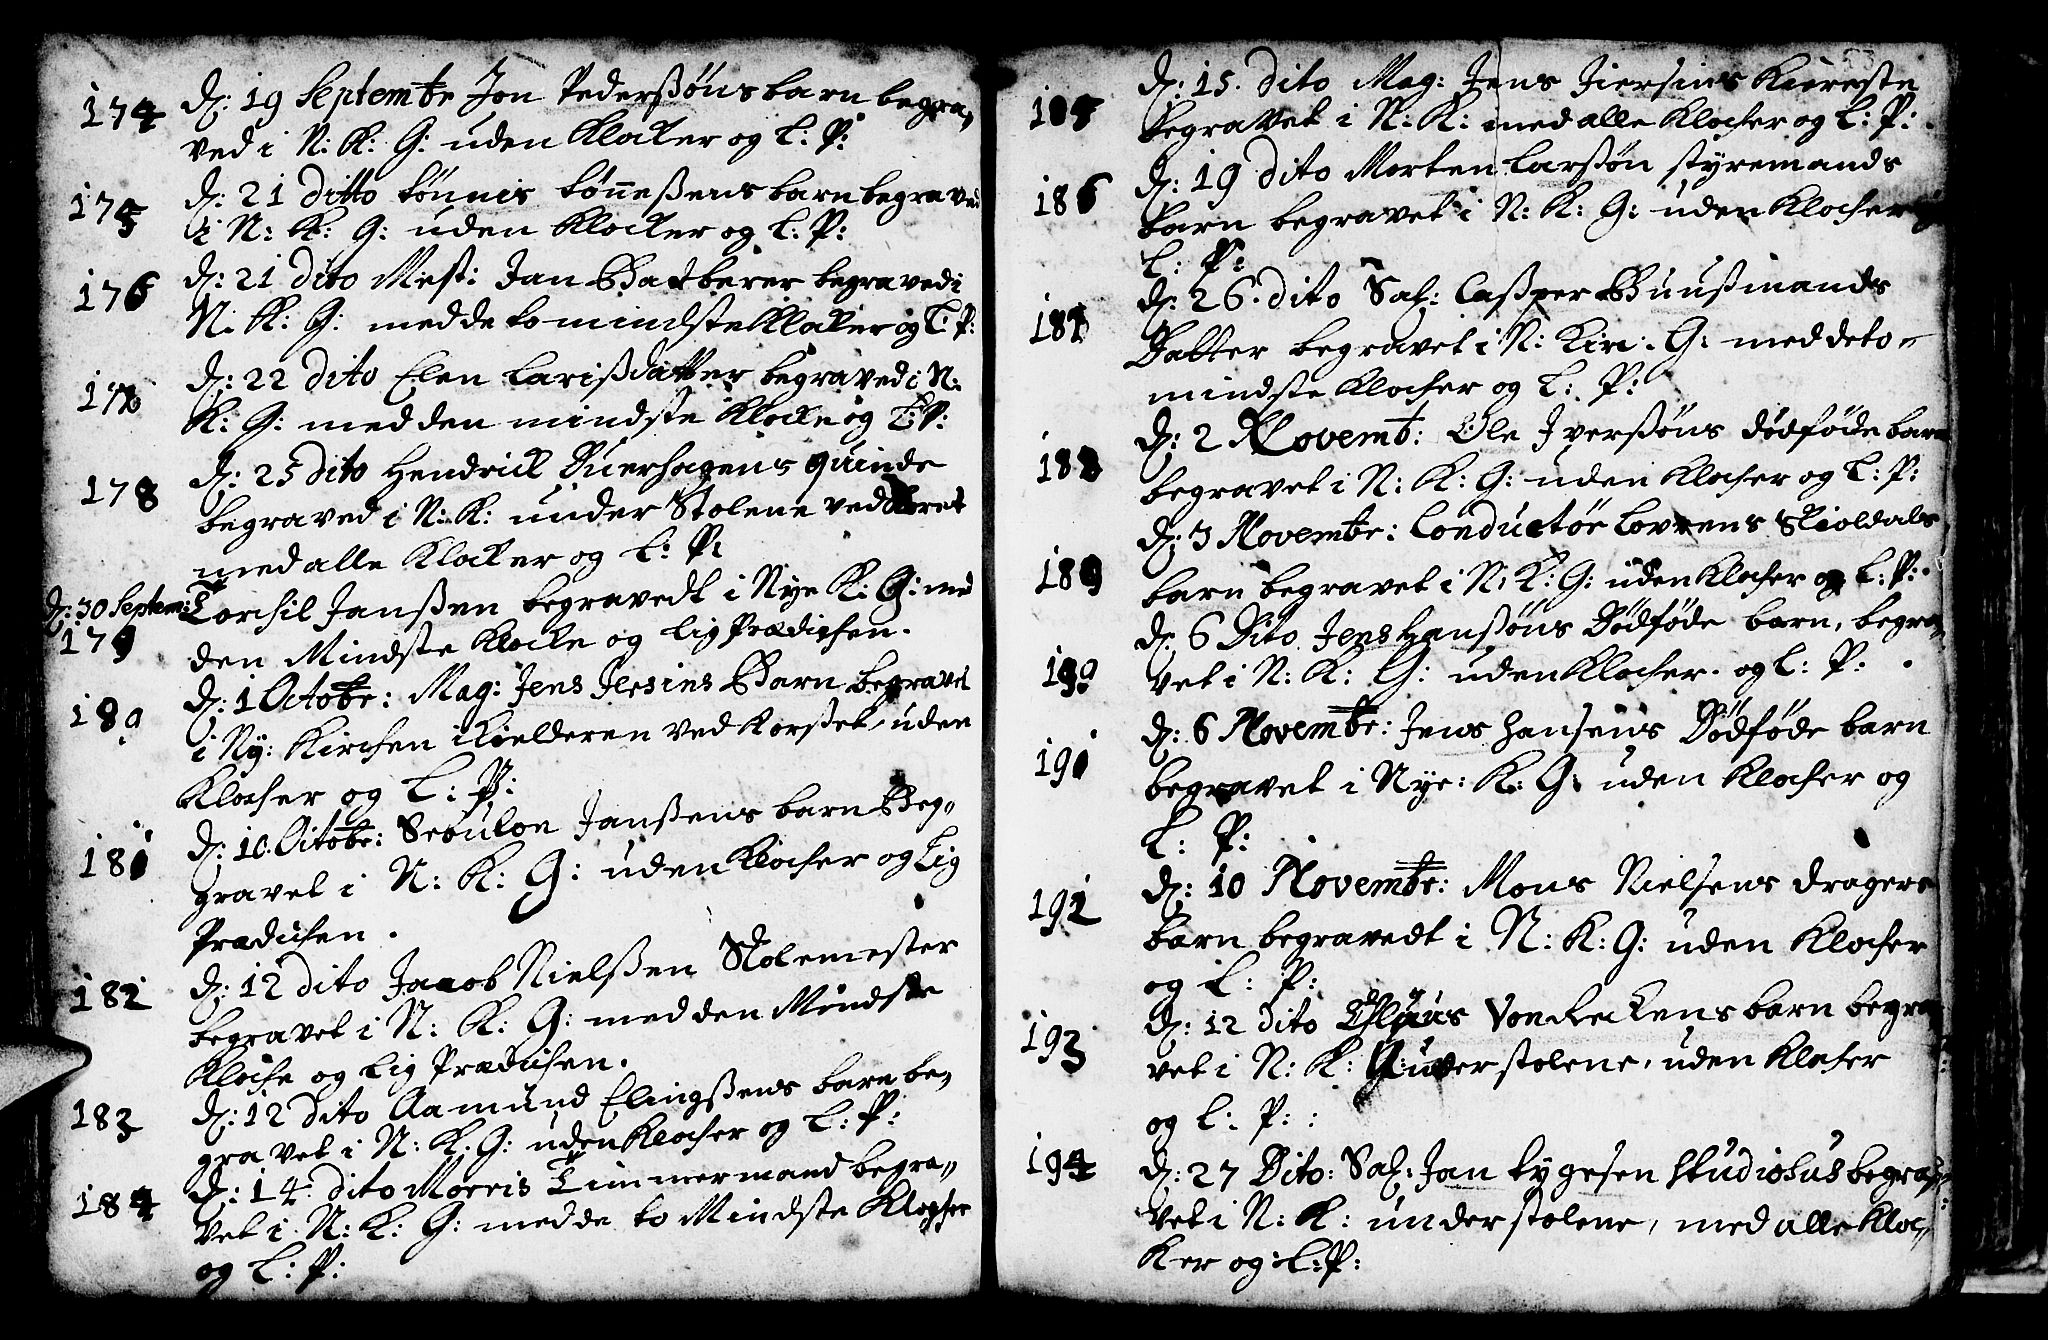 174 d: 19 Septembr Jon Pederßøns barn begra„
ved i N: K: G: uden Klocker og L: P:
175 d: 21 ditto tønnis tønneßens barn begraved
i N: K: G: uden Klocker og L: P:
176 d: 21 dito Mest: Jan Bartberer begraved i
N: K: G: med de to mindste Klocker og L: P:
177 d: 22 dito Elen Larißdatter begraved i N:
K: G: med den mindste Klocke og L: P:
178 d: 25 dito Hendrick Duerhagens quinde
begraved i N: K: under Stolene ved
med alle Klocker og L: P:
d: 30 Septem: Torchil Janßen begravedt i Nye K: G: med
179 den Mindste Klocke og Lig Prædichen.
180 d: 1 Octobr: Mag: Jens Jersins Barn begravet
i Ny: Kirchen i Kielderen ved Korßet, uden
Klocher og L: P:
181 d: 10. Octobr: Sebulon Janßens barn Beg„
gravet i N: K: G: uden Klocher og Lig
Prædichen.
182 d: 12 dito Jacob Nielßen Skolemester
begravet i N: K: G: med den Mindste
Kloche og Lig Prædichen.
183 d: 12 dito Aamund Elingßens barn be„
gravet i N: K: G: uden Klocher og L: P:
184 d: 14 dito Morris Timmermand begra„
vet i N: K: G: med de to Mindste Klocher
og L: P:
185 d: 15. dito Mag: Jens Jiersins Kiereste
begravet i N: K: med alle Klocher og L: P:
186 d: 19 dito Morten Larßøn styremands
barn begravet i N: K: G: uden Klocher og
L: P:
187 d: 26. dito Sal: Casper Buußmands
Datter begravet i N: Kirc. G: med de to
mindste Klocher og L: P:
188 d: 2 Novemb: Ole Iverßøns dødføde barn
begravet i N: K: G: uden Klocher og L: P:
189 d: 3 Novembr: Conductør Lovrens Skioldals
barn begravet i N: K: G: uden Klocher og L: P:
190 d: 6 Dito Jens Hanßøns Dødføde barn, begra„
vet i N: K: G: uden Klocher. og L: P:
191 d: 6 Novembr: Jens Hansens Dødføde barn
begravet i Nye: K: G: uden Klocher og
L: P:
192 d: 10 Novembr: Mons Nielsens dragers
barn begravedt i N: K: G: uden Klocher
og L: P:
193 d: 12 dito Claus Von Reckens barn begra
vet i N: K: under stolene, uden Klocher
og L: P:
194 d: 27 Dito: Sal: Jan tygesen Studiosus begra„
vet i N: K: under stolene, med alle Kloc„
Ker og L: P: